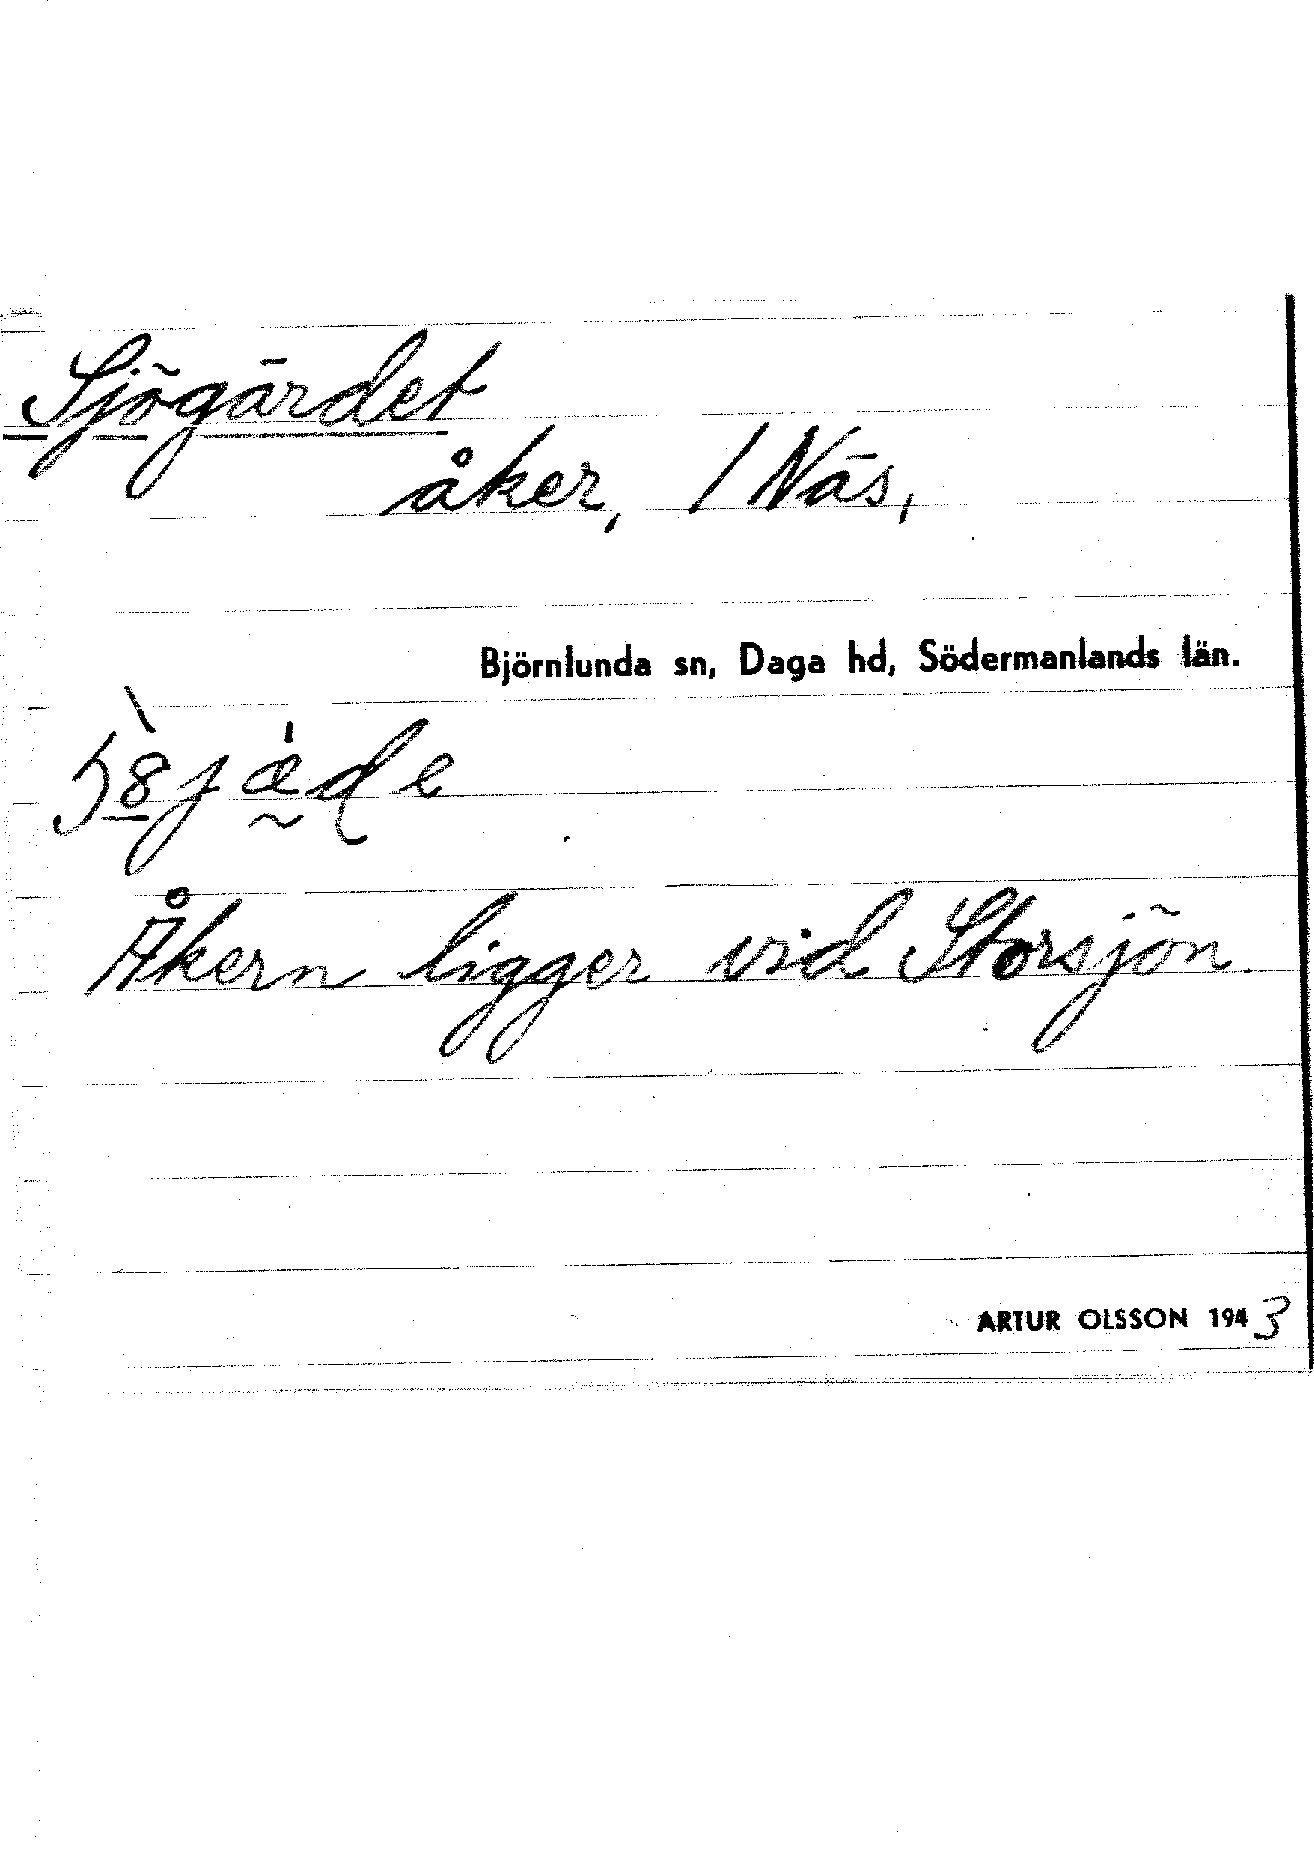 Sjögärdet
åker, 1 Näs,
Björnlunda sn, Daga hd, Södermanlands län.
Åkern ligger vid Storsjön.
ARTUR OLSSON 1943